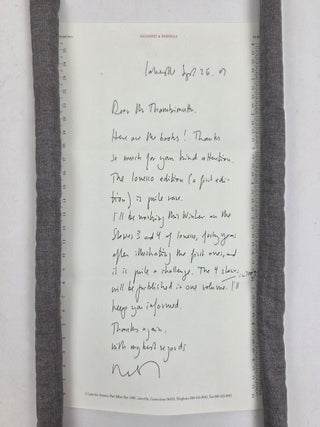 DELESSERT & MARSHALL
Lakeville Sept 26. 07
Dear Mr Thambimuttu,
Here are the books! Thanks
so much for your kind attention.
The Ionesco edition (a first edi-
tion) is quite rare.
I'll be working this Winter on the
Stories 3 and 4 of Ionesco, forty years
after illustrating the first ones, and
it is quite a challenge. The 4 stories
will be published in one volume. I'll
keep you informed.
Thanks again,
with my best regards